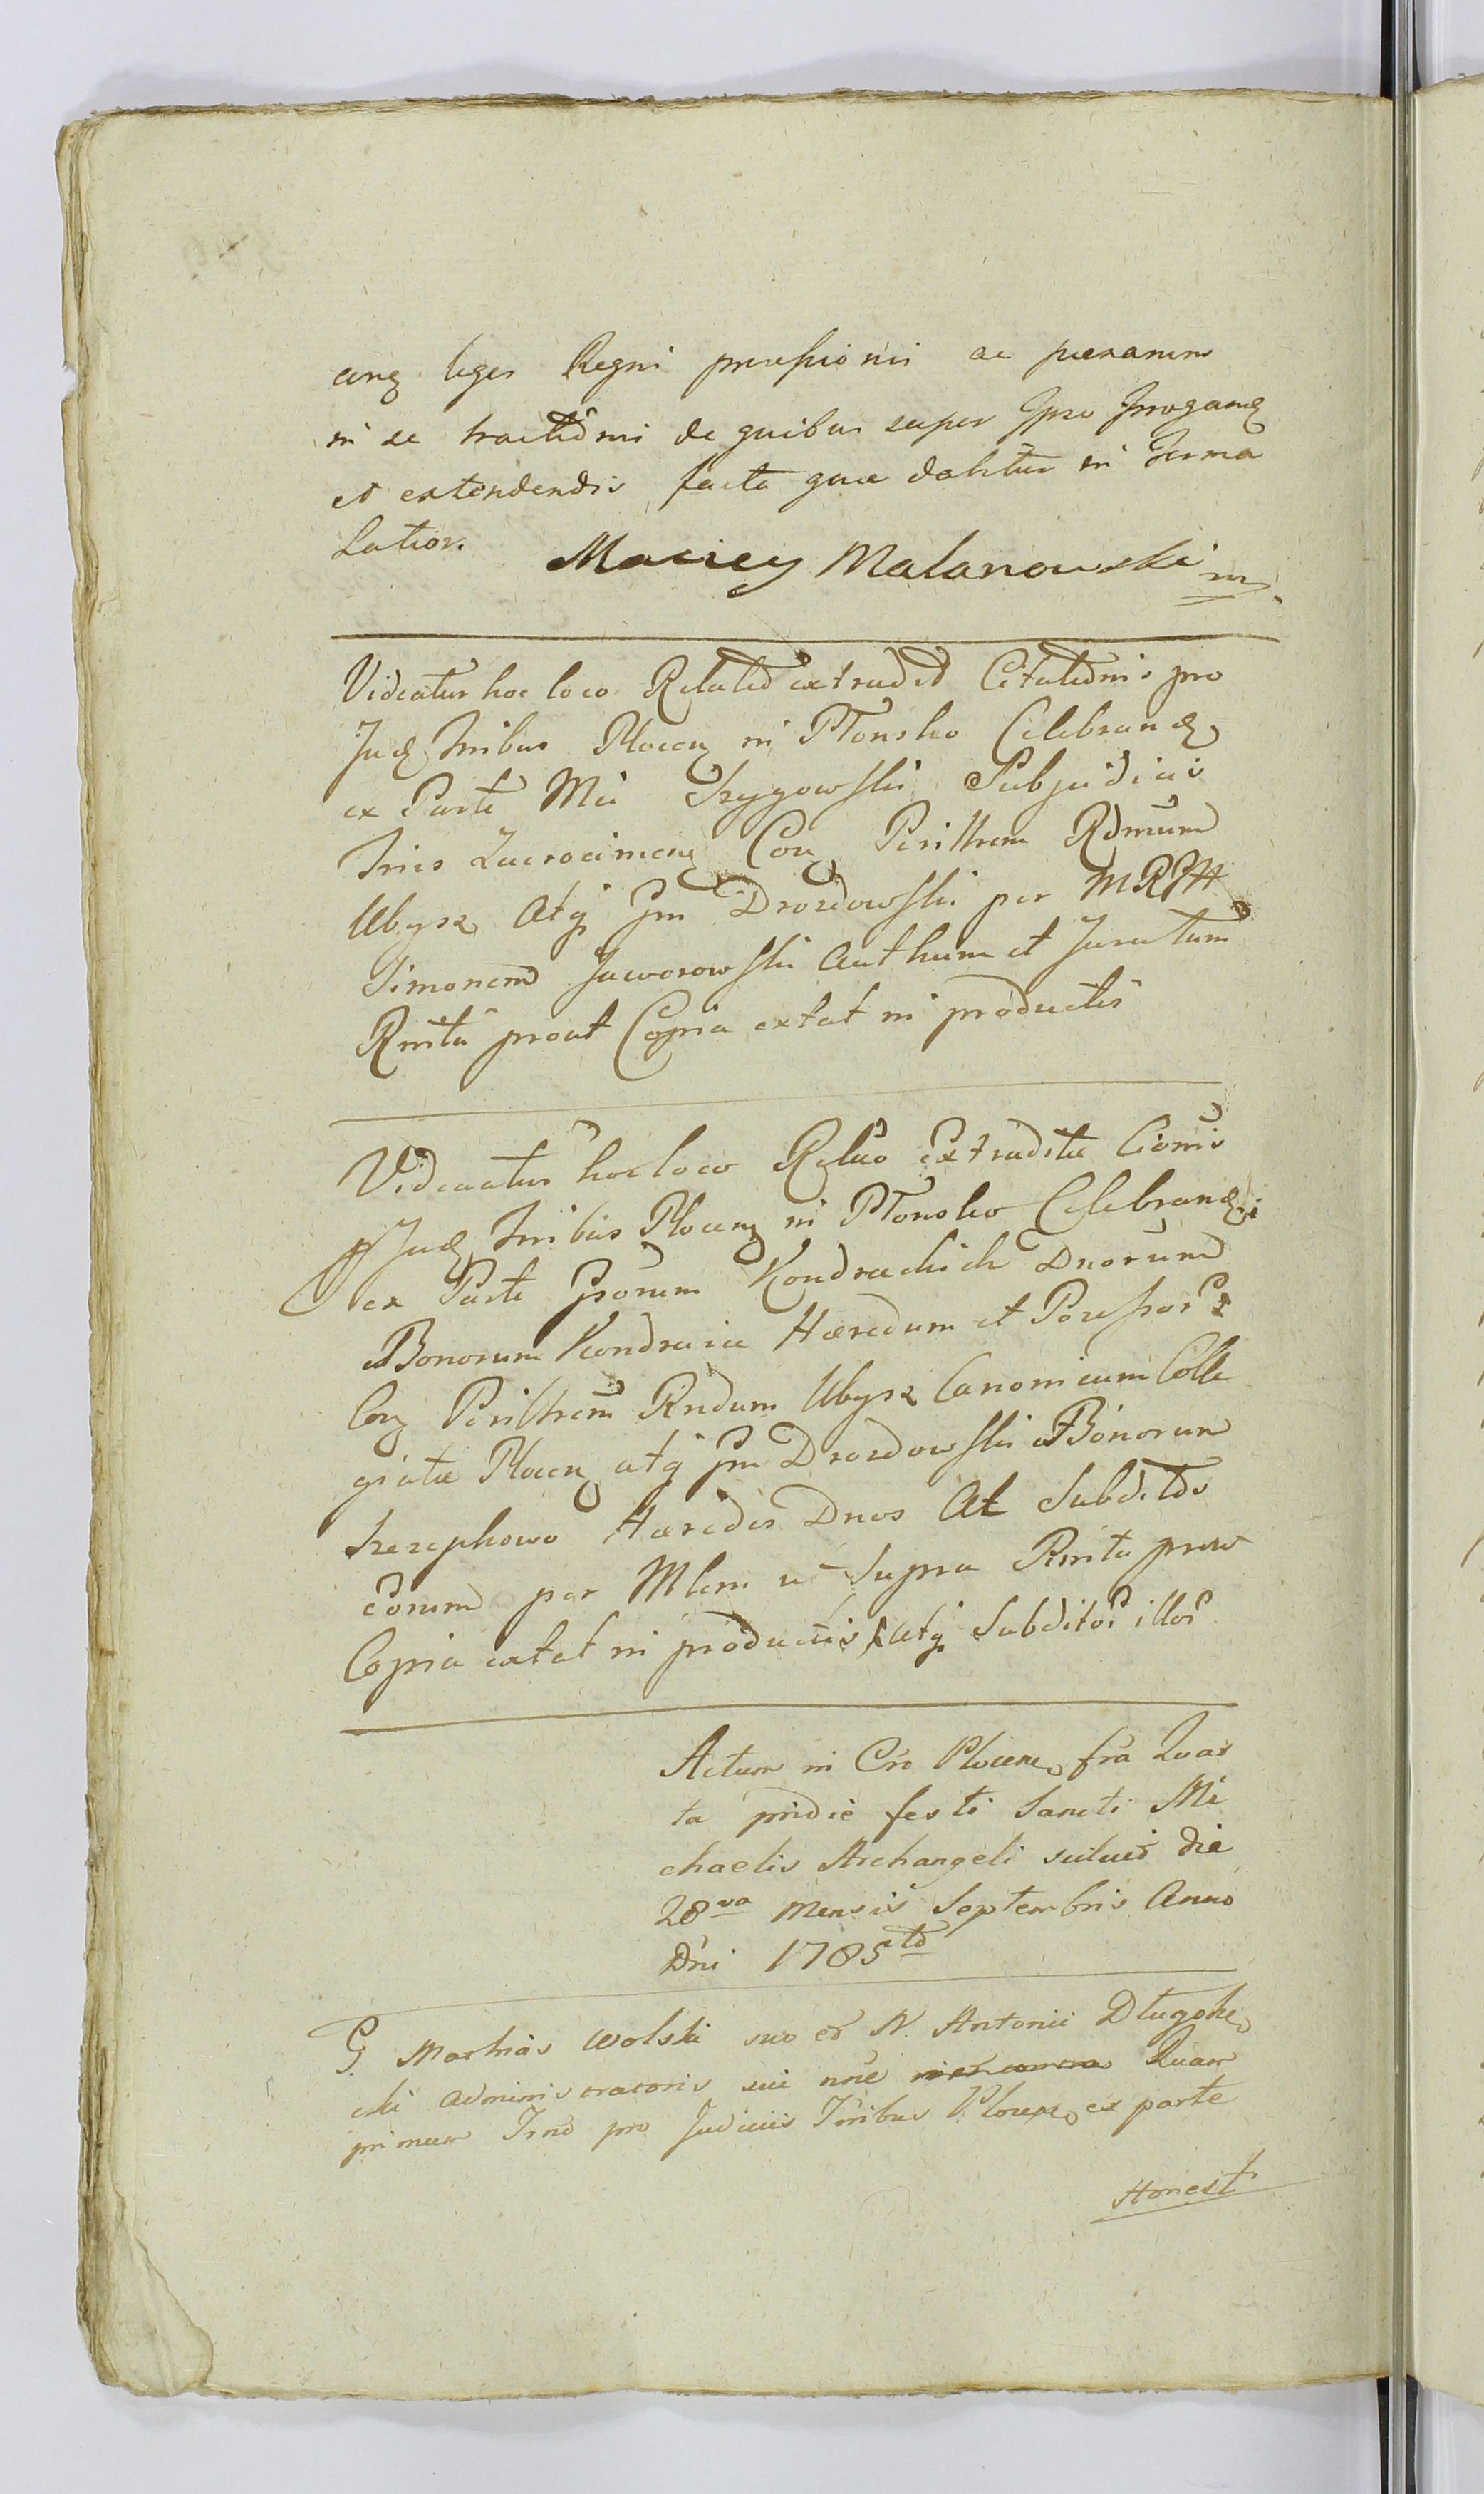 cunq leges Regni praessionis ac paenarum
in se tractionis de quibus super Ipso Irrogandis
et extendendis facta quae dabitur in Terma
Latior. Maciey Malanowski mp.
Videatur hoc loco Relatio extradit Citationis pro
Jud Trribus Plocen in Płonsko Celebrand
ex Parte Mci Subjudicis
Trris Zacrocimen Con Perillrem Rdmum
Ubysz Atq Gm Drozdowski per MRPtt
Simonem Jaworowski Authum et Juratum
Rnita prout Copia extat in productis
Videatur hoc loco Relao Extraditae Cionis
p Jud Trribus Plocen in Płonsko Celebrand
ex Parte Gsorum Kondrackich Dnorum
Bonorum Kondraiec Haeredum et Possessor
Con Perillrem Rndum Ubysz Canonicum Colle
giatae Plocen atq Gm Drozdowski Bonorum
Haeredes Dnos At Subditos
eorum per Mlem ut Supra Rnita prout
Copia extat in productis atq Subditos illos
Actum in Cro Plocen fra Quar
ta pridie festi Sancti Mi
chaelis Archangeli scilicet die
28va Mensis Septembris Anno
Dni 1785to
G. Mathias Wolski suo et N. Antonii Długołę
cki administratoris sui nne Quam
primum Trno pro Judiciis Trribus Plocen ex parte
Honest